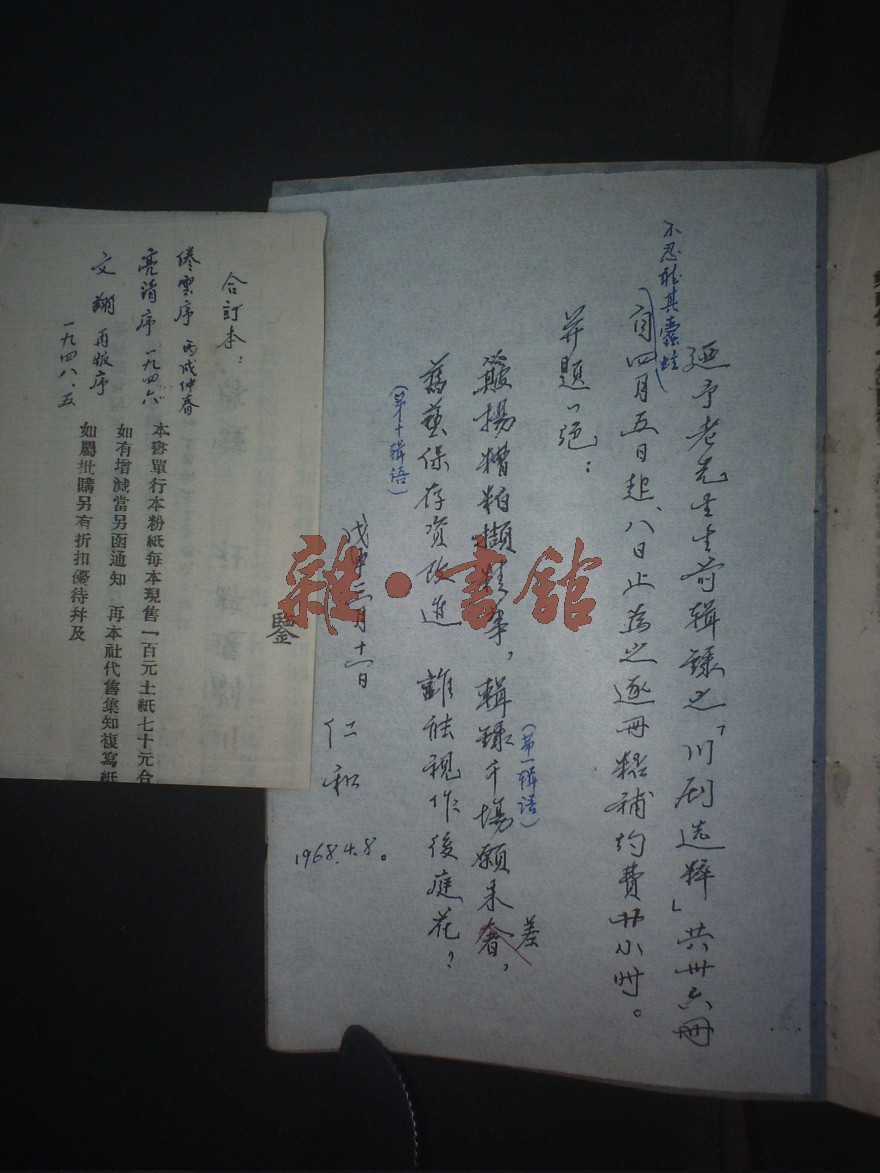 迺予老先生生前辑录之「川剧选粹」共卅六冊
不忍聽其蠹蛀
自四月五日起、八日止為之逐冊粘補約費廿小时。
并題一绝：
簸揚糟粕擷精华，輯録千場願未奢，
差
(第一辑语)
舊藝保存資改进 誰能視作後庭花？
(第十辑语)
戊申三月十一日 仁和
1968.4.8。
雜·書館
鑒
合訂本：
倦雲序 丙戌仲春
亮清序 一九四六
文翔再版序
一九四八、五
本書單行本粉紙每本現售一百元土紙七十元合
如有增減當另函通知 再本社代售集知複寫紙
如屬批購另有折扣優待幷及